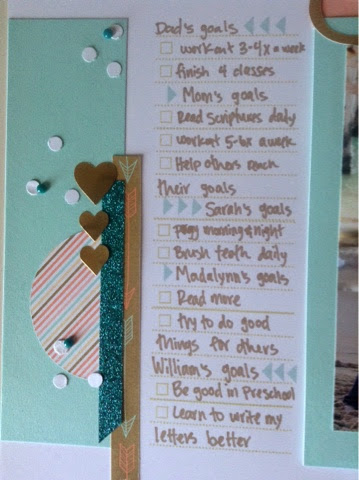 Dad's goals
workout 3-4x a week
finish 4 classes
Mom's goals
Read Scriptures daily
workout 5-6x a week
Help others reach
their goals
Sarah's goals
piggy morning & night
Brush teeth daily
Madalynn's goals
Read more
Try to do good
things for others
William's goals
Be good in Preschool
Learn to write my
letters better